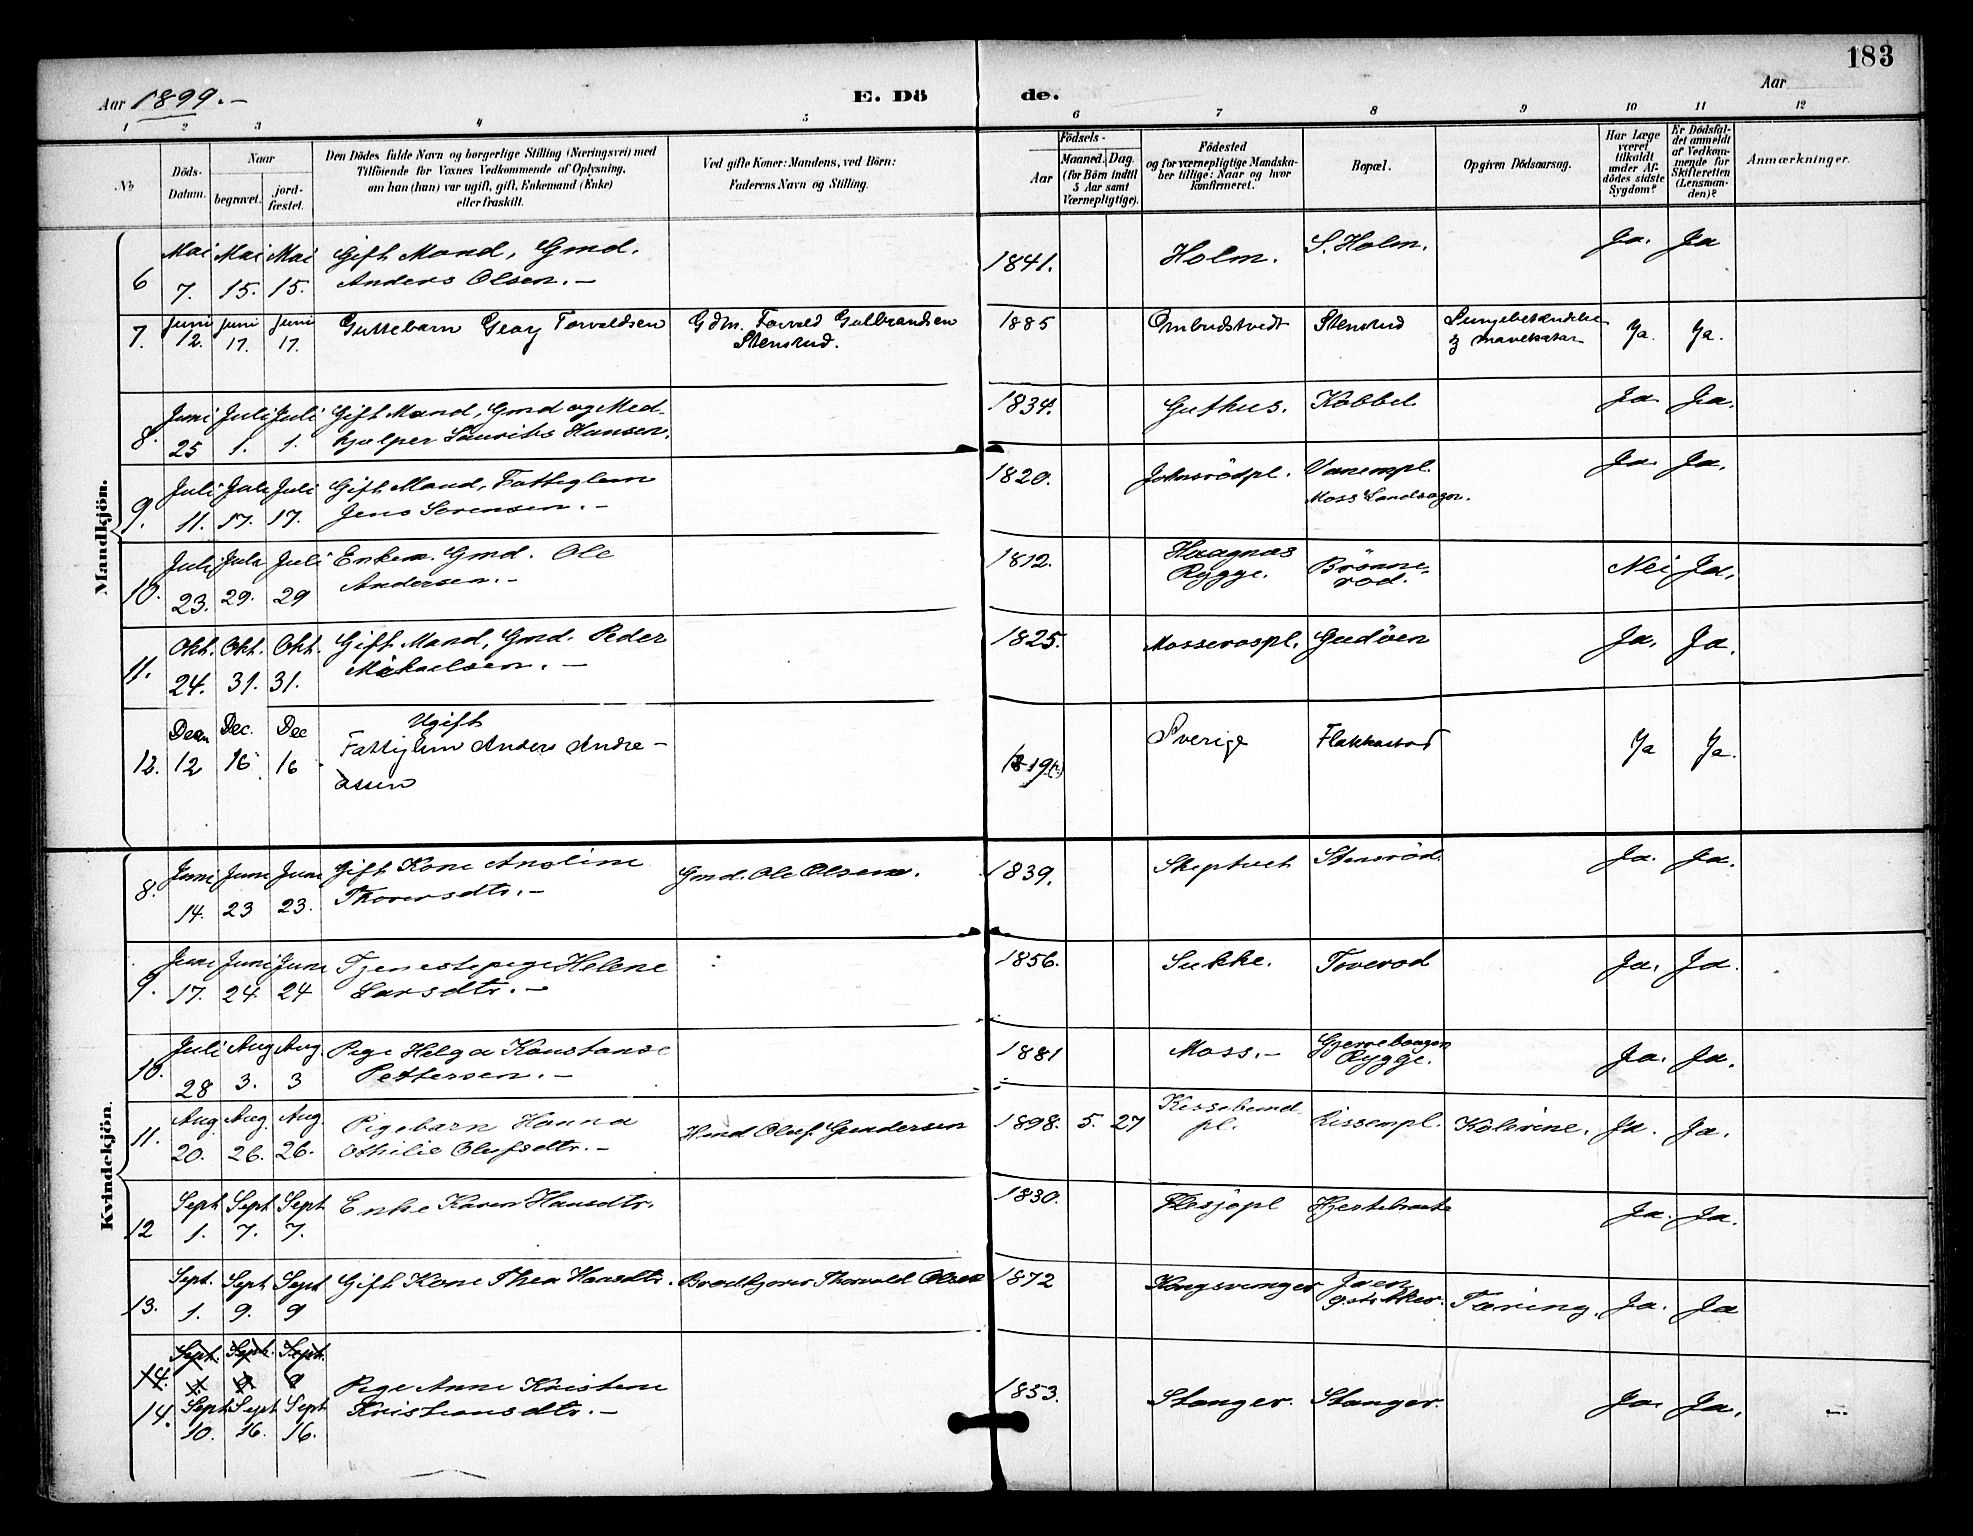 183
Aar 1899.–
E. Dö
de.
Aar
1 2 3 4 5 6 7 8 9 10 11 12
No
Döds-
Datum.
Naar
begravet.
jord-
fæstet.
Den Dödes fulde Navn og borgerlige Stilling (Næringsvei) med
Tilföiende for Voxnes Vedkommende af Oplysning,
om han (hun) var ugift, gift, Enkemand (Enke)
eller fraskilt.
Ved gifte Koner: Mandens, ved Börn:
Faderens Navn og Stilling.
Födsels-
Aar
Maaned. Dag.
(for Börn indtil
5 Aar samt
Værnepligtige).
Födested
og for værnepligtige Mandska-
ber tillige: Naar og hvor
konfirmeret.
Bopæl.
Opgiven Dödsaarsag.
Har Læge
været
tilkaldt
under Af-
dödes sidste
Sygdom?
Er Dödsfal-
det anmeldt
af Vedkom-
mende for
Skifteretten
(Lensman-
den)?
Anmærkninger.
Mandkjön.
6 Mai 7. Mai 15. Mai 15. Gift Mand, Gmd. Anders Olsen.– 1841. Holm. S. Holm. Ja. Ja
7. Juni 12. Juni 17. Juni 17. Guttebarn Georg Torvaldsen Gdm. Torvald Gulbrandsen Stensrud. 1885 Ombudstvedt Stensrud Lungebetændelse og mavekatar Ja. Ja.
8. Juni 25 Juli 1. Juli 1. Gift Mand, Gmd og Med- hjælper Laurits Hansen. 1834. Guthus. Kobbel. Ja. Ja.
9. Juli 11. Juli 17. Juli 17. Gift Mand, Fattiglem Jens Sørensen.– 1820. Johnsrödpl. Vanempl. Moss Landsogn. Ja. Ja.
10. Juli 23. Juli 29. Juli 29 Enkem. Gmd. Ole Andersen.– 1812. Rygge. Brønne- rod. Nei Ja.
11. Okt. 24. Okt. 31. Okt. 31. Gift Mand, Gmd. Peder Mikaelsen.– 1825. Mosserospl. Gudøen Ja. Ja.
12. 12 Dec. 16 Dec 16 Ugift Fattiglem Anders Andre- assen 1819(?) Sverige Flakkastad Ja Ja.
Kvindekjön.
8. Juni 14. Juni 23 Juni 23. Gift Kone Anoline Thoresdtr.– Gmd. Ole Olsen. 1839. Skiptvet Stensröd. Ja. Ja.
9. Juni 17. Juni 24 Juni 24 Tjenestepige Helene Larsdtr.– 1856. Sukke. Toverod Ja. Ja.
10. Juli 28 Aug 3. Aug. 3 Pige Helga Konstanse Pettersen.– 1881 Moss.– Rygge. Ja. Ja.
11. Aug 20. Aug. 26. Aug. 26. Pigebarn Hanna Othilie Olufsdtr.– Hmd Oluf Gundersen 1898. 5. 27 Kessebund pl. Rissenpl. Kolerine. Ja. Ja.
12 Sept 1. Sept 7. Sept 7. Enke Karen Hansdtr. 1830. Flesjøpl Ja. Ja.
13. Sept. 1. Sept 9. Sept 9 Gift Kone Thea Hansdtr. Brødkjører Thorvald Olsen 1872 Kongsvinger Tæring. Ja. Ja
14. Sept. Sept. 9 Sept. 9
14. Sept 10. Sept 16. Sept 16. Pige Anne Kristine Kristiansdtr.– 1853. Stanger. Stanger. Ja. Ja. –